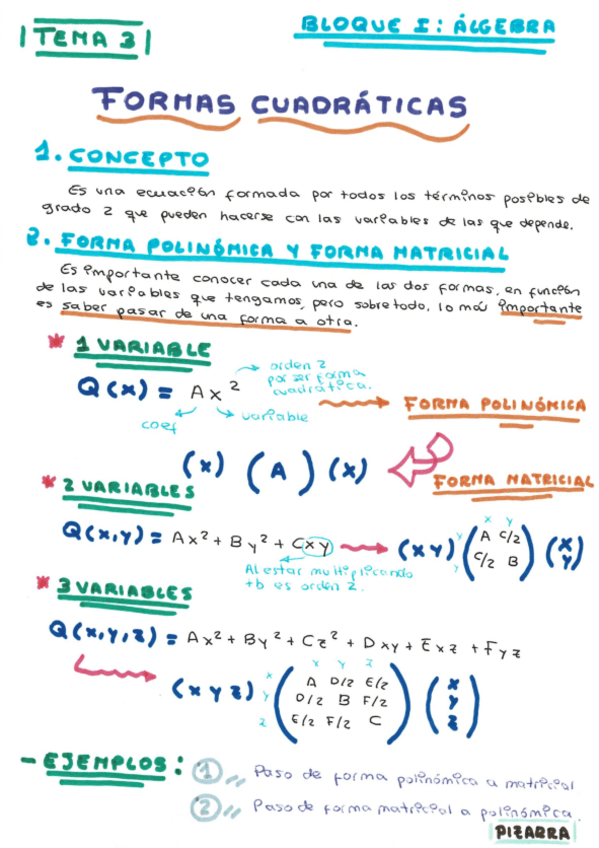 TEMA 3
BLOQUE I: ÁLGEBRA
FORMAS CUADRÁTICAS
1. CONCEPTO
Es una ecuación formada por todos los términos posibles de
grado 2 que pueden hacerse con las variables de las que depende.
2. FORMA POLINÓMICA Y FORMA MATRICIAL
Es importante conocer cada una de las dos formas, en función
de las variables que tengamos, pero sobretodo, lo más importante
es saber pasar de una forma a otra.
* 1 VARIABLE
Q(x) = Ax²
orden 2
por ser forma
cuadrática.
coef
variable
FORMA POLINÓMICA
(x) (A) (x)
FORMA MATRICIAL
* 2 VARIABLES
Q(x,y) = Ax² + By² + Cxy
Al estar multiplicando
tb es orden 2.
x y
(x y) x ( A C/2 ) (x)
y ( C/2 B ) (y)
* 3 VARIABLES
Q(x,y,z) = Ax² + By² + Cz² + Dxy + Exz + Fyz
x y z
x ( A D/2 E/2 ) (x)
(x y z) y ( D/2 B F/2 ) (y)
z ( E/2 F/2 C ) (z)
- EJEMPLOS:
1 Paso de forma polinómica a matricial
2 Paso de forma matricial a polinómica.
PIZARRA